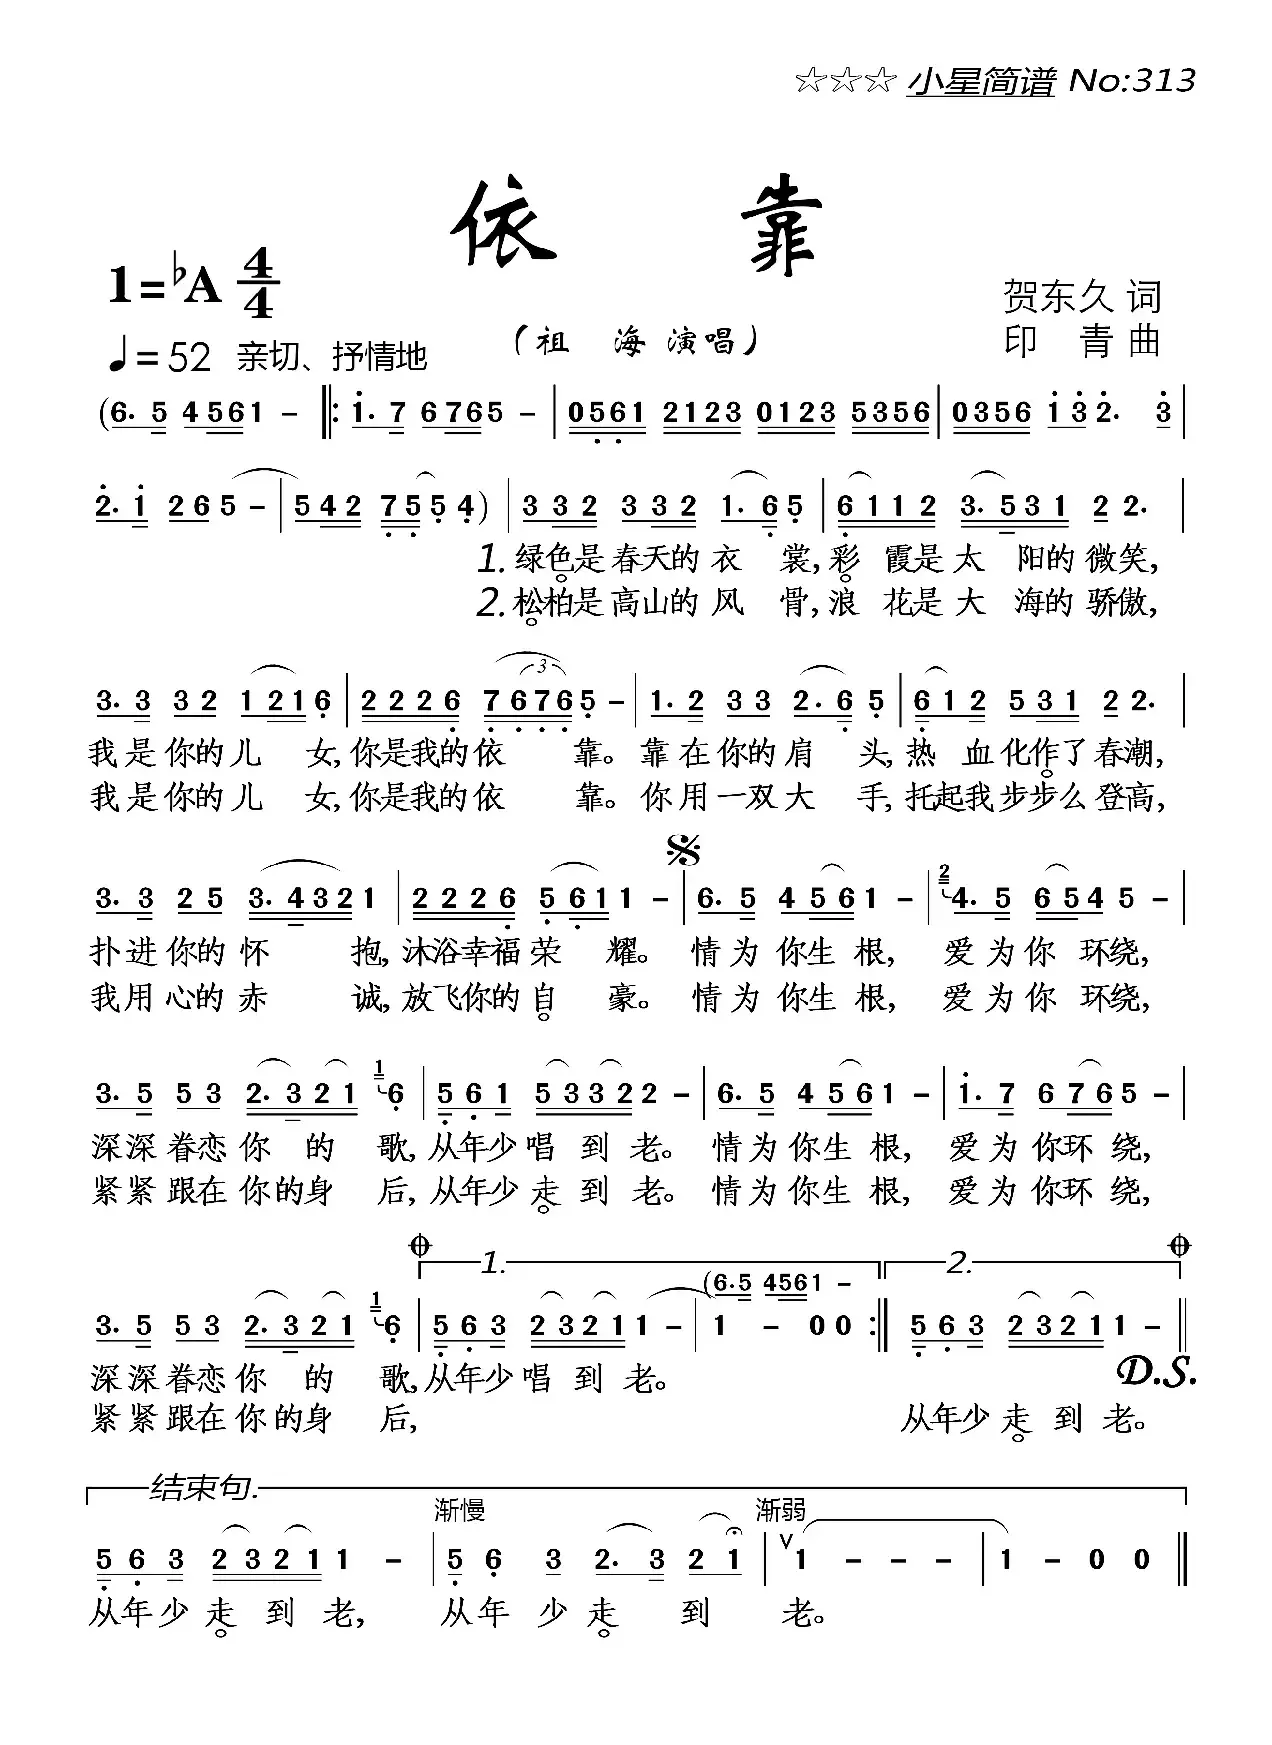 ☆☆☆ 小星简谱 No:313
依 靠
1=♭A 4/4
贺东久 词
♩=52 亲切、抒情地
（祖 海 演唱）
印 青 曲
(6. 5 4 5 6 1 – ‖: 1. 7 6 7 6 5 – | 0 5 6 1 2 1 2 3 0 1 2 3 5 3 5 6 | 0 3 5 6 1 3 2. 3 |
2. 1 2 6 5 – | 5 4 2 7 5 5 4 ) | 3 3 2 3 3 2 1. 6 5 | 6 1 1 2 3. 5 3 1 2 2. |
1. 绿色是春天的衣 裳, 彩 霞是太 阳的微笑,
2. 松柏是高山的风 骨, 浪 花是大 海的骄傲,
3. 3 3 2 1 2 1 6 | 2 2 2 6 7 6 7 6 5 – | 1. 2 3 3 2. 6 5 | 6 1 2 5 3 1 2 2. |
3
我是你的儿 女, 你是我的依 靠。 靠在你的肩 头, 热 血化作了春潮,
我是你的儿 女, 你是我的依 靠。 你用一双大 手, 托起我步步么登高,
3. 3 2 5 3. 4 3 2 1 | 2 2 2 6 5 6 1 1 – | 6. 5 4 5 6 1 – | 2 4. 5 6 5 4 5 – |
扑进你的怀 抱, 沐浴幸福荣 耀。 情为你生根, 爱为你 环绕,
我用心的赤 诚, 放飞你的自 豪。 情为你生根, 爱为你 环绕,
3. 5 5 3 2. 3 2 1 1 6 | 5 6 1 5 3 3 2 2 – | 6. 5 4 5 6 1 – | 1. 7 6 7 6 5 – |
深深眷恋你 的 歌, 从年少唱 到 老。 情为你生 根, 爱为你环 绕,
紧紧跟在你的身 后, 从年少走 到 老。 情为你生 根, 爱为你环 绕,
1. 2.
(6. 5 4 5 6 1 –
3. 5 5 3 2. 3 2 1 1 6 | 5 6 3 2 3 2 1 1 – | 1 – 0 0 :‖ 5 6 3 2 3 2 1 1 – ‖
D.S.
深深眷恋你 的 歌, 从年少唱 到 老。
紧紧跟在你的身 后, 从年少走 到 老。
结束句.
渐慢 渐弱
5 6 3 2 3 2 1 1 – | 5 6 3 2. 3 2 1 | V 1 – – – | 1 – 0 0 ‖
从年少走 到 老, 从年 少走 到 老。